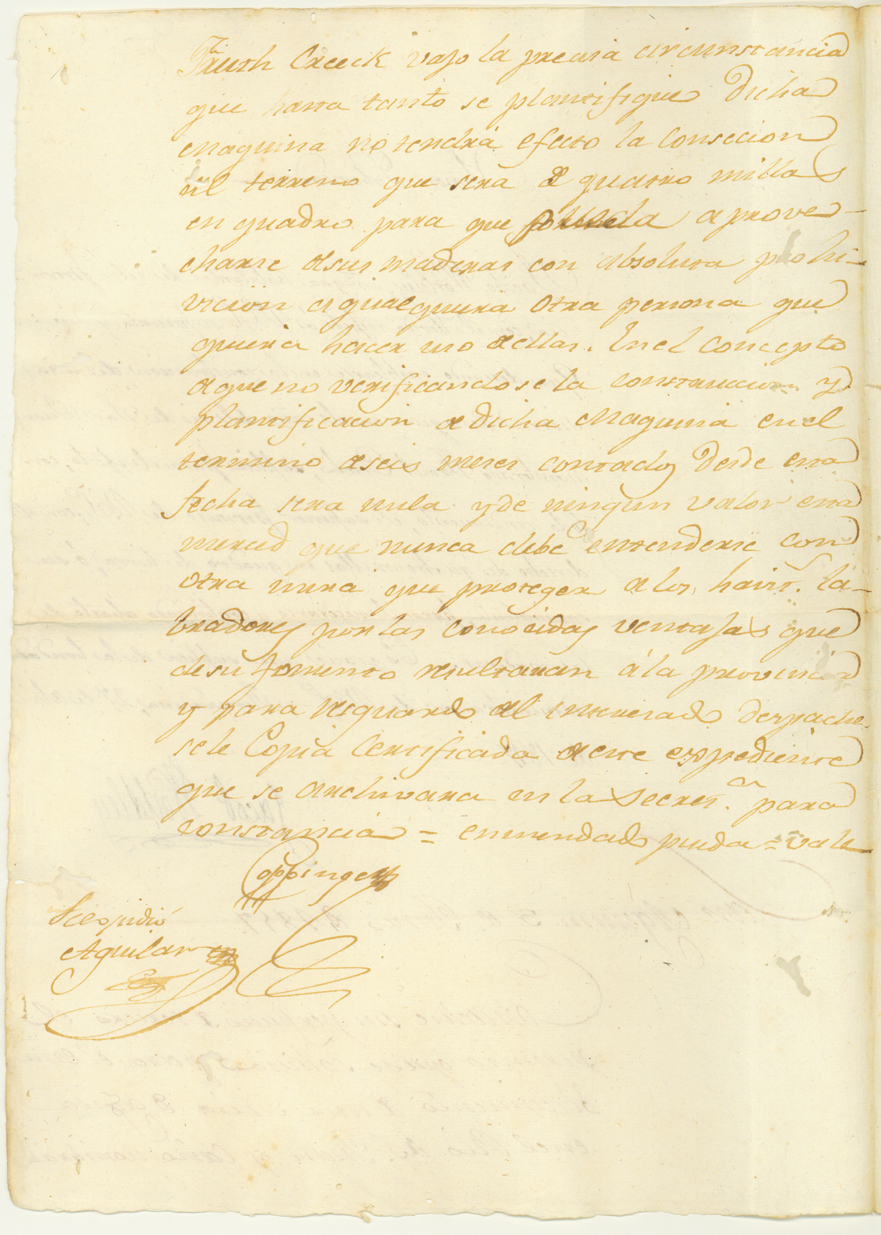 Trouth Creeck vajo la precisa circunstancia
que hasta tanto se plantifique Dicha
maquina no tendrá efecto la consecion
del terreno que sera de quatro millas
en quadro para que pueda aprove-
charse de sus maderas con absoluta prohi-
vicion á qualquiera otra persona que
quiera hacer uso de ellas. En el concepto
de que no verificandose la construccion y
plantificacion de dicha Maquina en el
termino de seis meses contados desde esta
fecha sera nula y de ningun valor esta
merced que nunca debe entenderse con
otra mira que proteger á los havits. la-
bradores por las conocidas ventajas que
de su fomento resultaran á la provincia
y para resguardo del interesado despache-
sele Copia Certificada de este expediente
que se archivara en la Secret.a para
constancia = enmendado pueda = vale
Coppinger
Se espidió
Aguilar